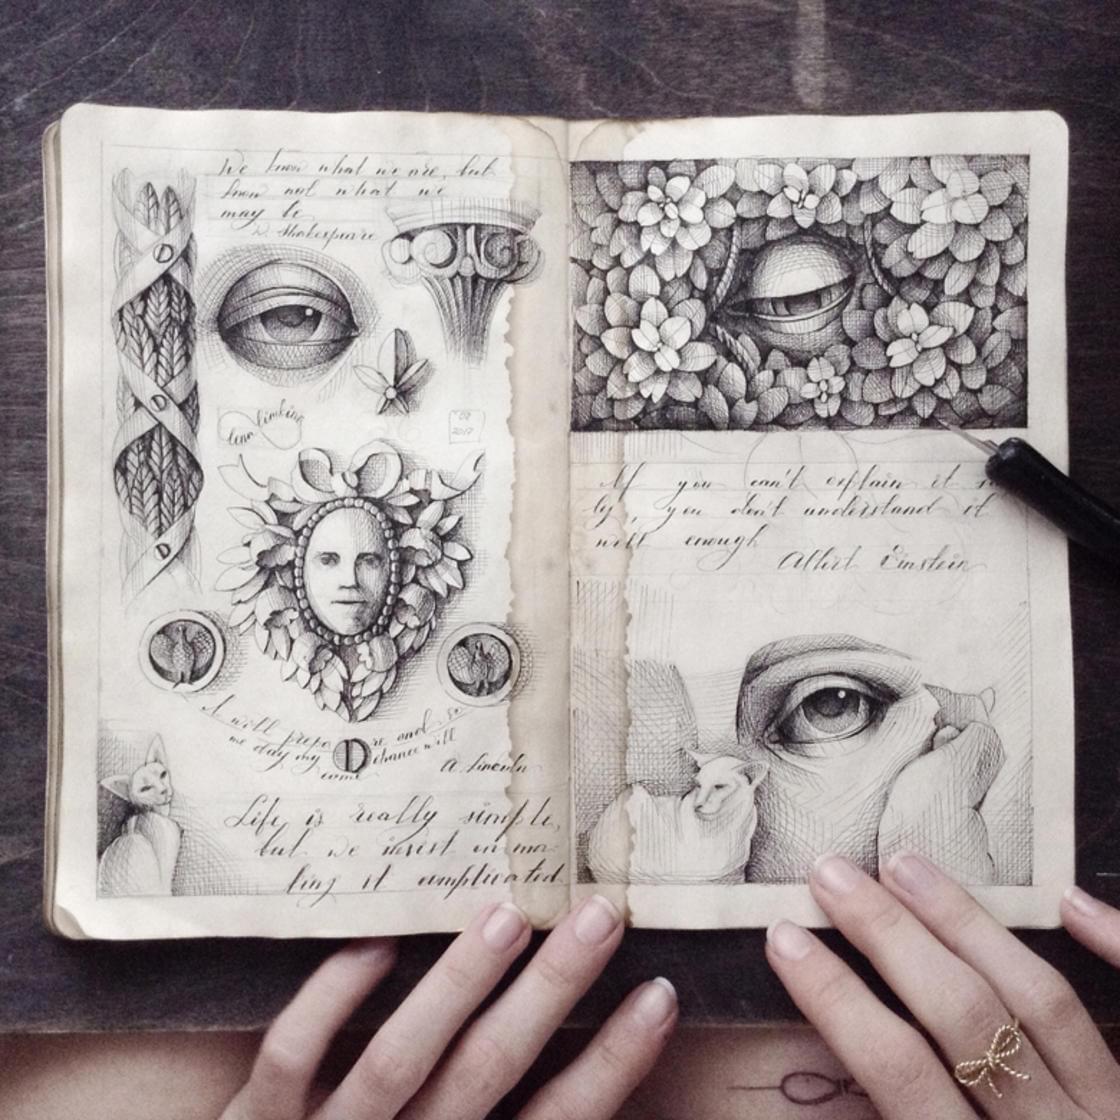 We know what we are, but
know not what we
may be
W. Shakespeare
lena limkina
02
2017
I will prepare and so
me day my chance will
come
A. Lincoln
Life is really simple,
but we insist on ma
king it complicated.
If you can't explain it
ly, you don't understand it
well enough
Albert Einstein